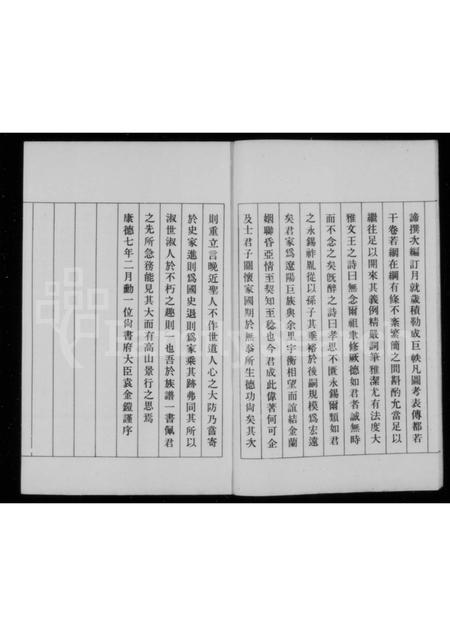 諦撰次編訂月就歲積勒成巨帙凡圖考表傳都若
干卷若綱在綱有條不紊繁簡之間斟酌允當足以
繼往足以開來其義例精嚴詞筆雅潔尤有法度大
雅文王之詩曰無念爾祖聿修厥德如君者誠無時
而不念之矣既醉之詩曰孝思不匱永錫爾類如君
之永錫祚胤從以孫子其垂裕於後嗣規模爲宏遠
矣君家爲遼陽巨族與余里宇衡相望而誼結金蘭
姻聯昏亞情至契知至稔也今君成此偉著何可企
及士君子關懷家國期於無忝所生德功尙矣其次
則重立言晚近聖人不作世道人心之大防乃當寄
於史家進則爲國史退則爲家乘其跡弗同其所以
淑世淑人於不朽之趣則一也吾於族譜一書佩君
之先所急務能見其大而有高山景行之思焉
康德七年二月勳一位尙書府大臣袁金鎧謹序